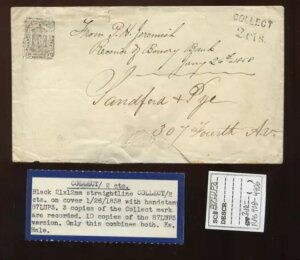 COLLECT
2 cts.
From P. H. Jeremiah
Bowery Bank
Jany 26th 1858
Sandford & Pye
307 Fourth Av
COLLECT/ 2 cts.
Black 21x12mm straightline COLLECT/2
cts. on cover 1/26/1858 with handstamp
87LUP3. 3 copies of the Collect mark
are recorded. 10 copies of the 87LUP3
version. Only this combines both. Ex.
Hale.
SC# 87LUP3
DESCR